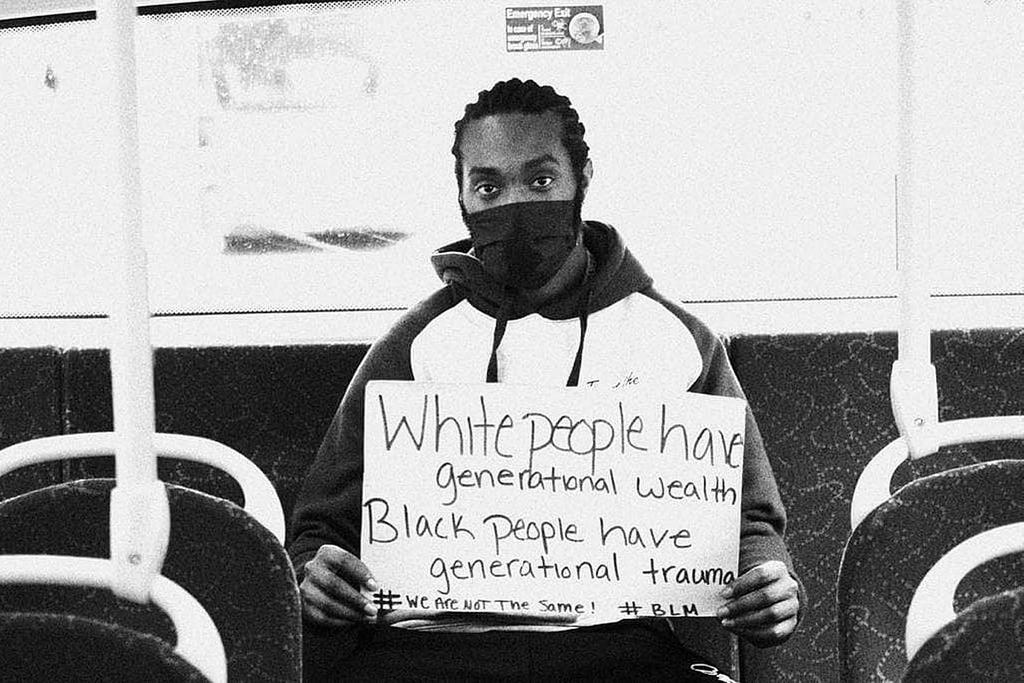 Emergency Exit
In case of
emergency
break glass
White people have
generational wealth
Black people have
generational trauma
#We Are Not The Same! #BLM